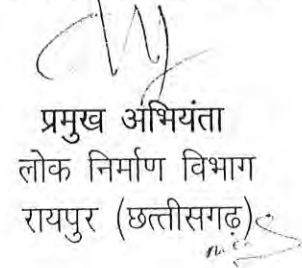 प्रमुख अभियंता
लोक निर्माण विभाग
रायपुर (छत्तीसगढ़)